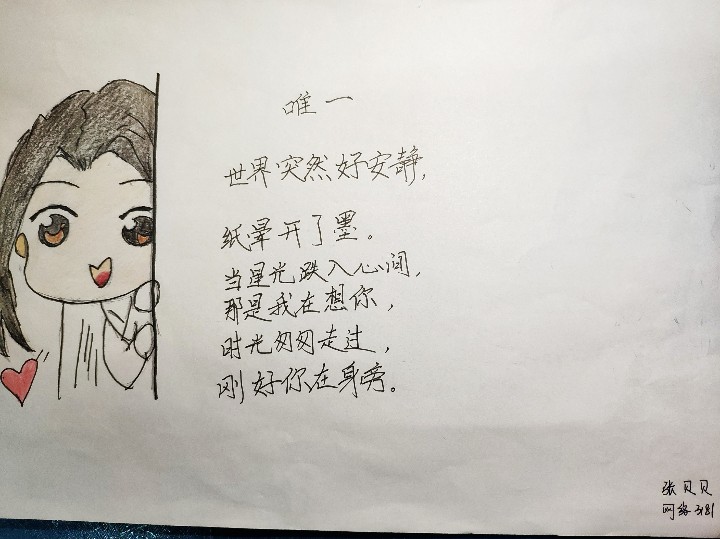 唯一
世界突然好安静,
纸晕开了墨。
当星光跌入心间,
那是我在想你,
时光匆匆走过,
刚好你在身旁。
张贝贝
网络3181